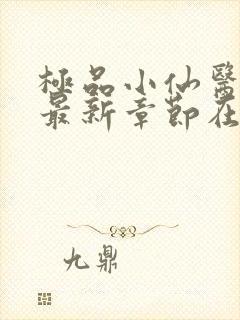 極品小仙醫
最新章節在
九鼎